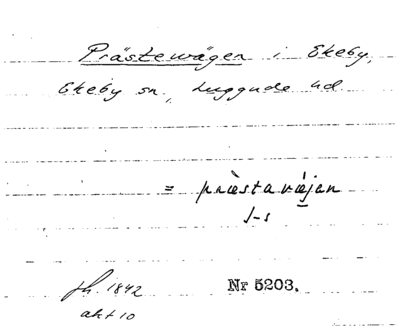 Prästevägen i Ekeby,
Ekeby sn., Luggude hd
= prästavæjen
1842
akt 10
Nr 5203.